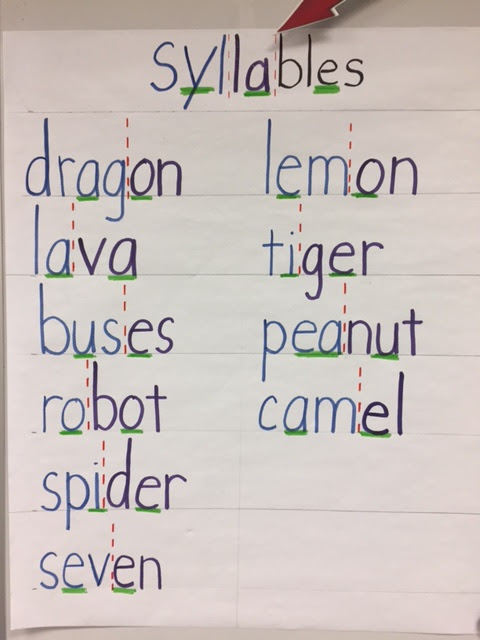 Syllables
dragon
lava
buses
robot
spider
seven
lemon
tiger
peanut
camel